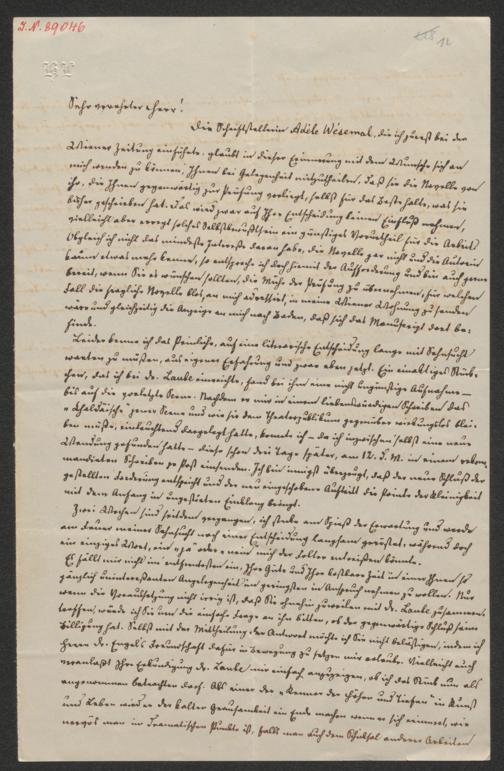 I.N. 89046
12
Sehr verehrter Herr!
Die Schriftstellerin Adèle Wesemal, die ich zuerst bei der
Wiener Zeitung einführte, glaubt in dieser Erinnerung mit dem Wunsche sich an
mich wenden zu können, Ihnen bei Gelegenheit mitzutheilen, daß sie die Novelle von
ihr, die Ihnen gegenwärtig zur Prüfung vorliegt, selbst für das Beste halte, was sie
bisher geschrieben hat. Das wird zwar auf Ihre Entscheidung keinen Einfluß nehmen,
vielleicht aber erregt solches Selbstbewußtsein ein günstiges Vorurtheil für die Arbeit.
Obgleich ich nicht das mindeste Interesse daran habe, die Novelle gar nicht und die Autorin
kaum etwas mehr kenne, so entspreche ich doch hiemit der Aufforderung und bin auch gerne
bereit, wenn Sie es wünschen sollten, die Mühe der Prüfung zu übernehmen, für welchen
Fall die fragliche Novelle blos, an mich adressirt, in meine Wiener Wohnung zu senden
wäre und gleichzeitig die Anzeige an mich nach Baden, daß sich das Manuscript dort be-
finde.
Leider kenne ich das Peinliche, auf eine literarische Entscheidung lange mit Sehnsucht
warten zu müssen, aus eigener Erfahrung und zwar eben jetzt. Ein einaktiges Stück-
chen, das ich bei Dr. Laube einreichte, fand bei ihm eine nicht ungünstige Aufnahme —
bis auf die vorletzte Scene. Nachdem er mir in einem liebenswürdigen Schreiben das
jener Scene und wie sie dem Theaterpublikum gegenüber wirkungslos blei-
ben müßte, einleuchtend dargelegt hatte, konnte ich – da ich inzwischen selbst eine neue
Wendung gefunden hatte – diese schon drei Tage später, am 12. d. M. in einem rekom-
mandirten Schreiben zu Post einsenden. Ich bin innigst überzeugt, daß der neue Schluß der
gestellten Forderung entspricht und der neu eingeschobene Auftritt die Pointe der Kleinigkeit
mit dem Anfang in Einklang bringt.
Zwei Wochen sind seitdem vergangen, ich stecke am Spieß der Erwartung und werde
am Feuer meiner Sehnsucht nach einer Entscheidung langsam geröstet, während doch
ein einziges Wort, ein „ja" oder „nein" mich der Folter entreißen könnte.
Es fällt mir nicht im entferntesten ein, Ihre Güte und Ihre kostbare Zeit in einer Ihnen so
gänzlich uninteressanten Angelegenheit im geringsten in Anspruch nehmen zu wollen. Nur
wenn die Voraussetzung nicht irrig ist, daß Sie ohnehin zuweilen mit Dr. Laube zusammen-
treffen, würde ich Sie um die einfache Frage an ihn bitten, ob der gegenwärtige Schluß seine
Billigung hat. Selbst mit der Mittheilung der Antwort möchte ich Sie nicht belästigen, indem ich
Herrn Dr. Engel's Freundschaft dafür in Bewegung zu setzen mir erlaube. Vielleicht auch
veranlaßt Ihre Erkundigung Dr. Laube mir einfach anzuzeigen, ob ich das Stück nun als
angenommen betrachten darf. Als einer der „Kenner der Höhen und Tiefen" in Kunst
und Leben wird er der kalten Grausamkeit ein Ende machen wenn er sich erinnert, wie
nervös man im dramatischen Punkte ist, falls man auch dem Schicksal anderer Arbeiten